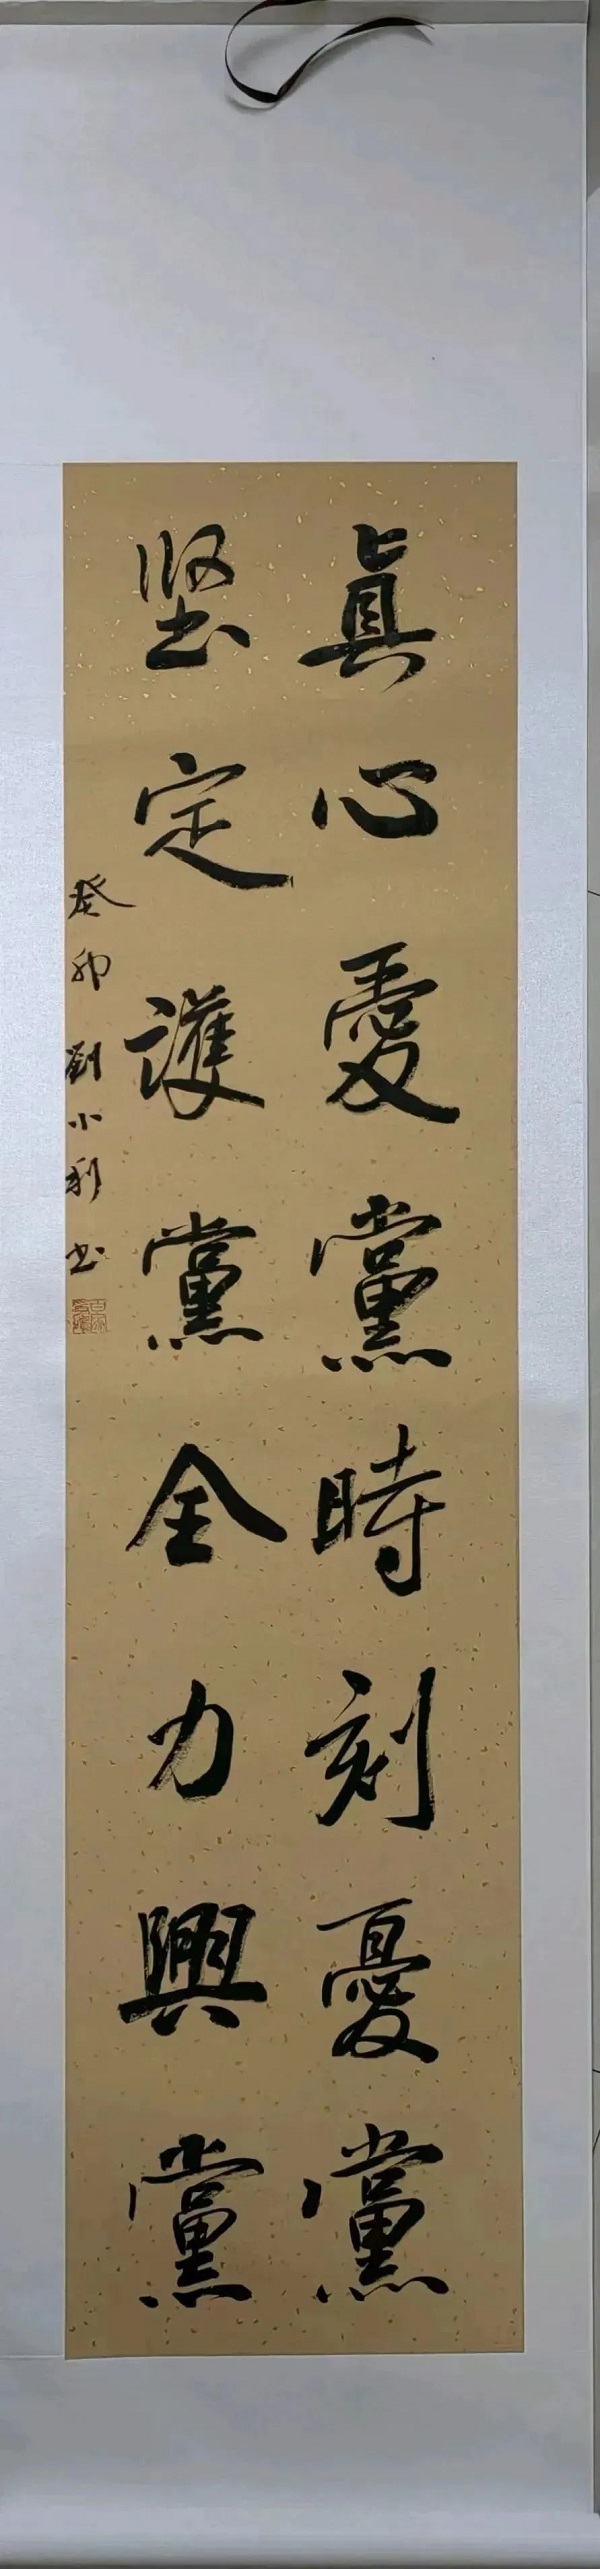 真心愛黨時刻憂黨
堅定護黨全力興黨
癸卯劉小利书